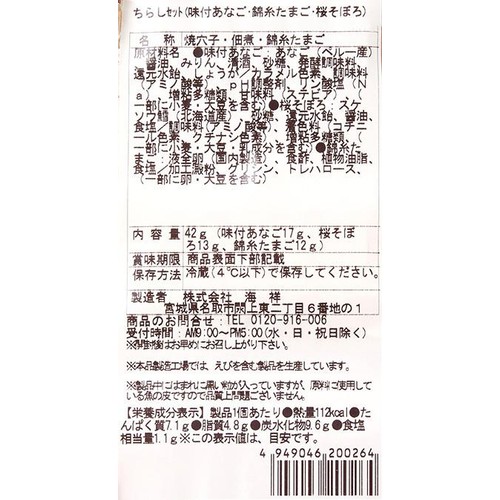 ちらしセット(味付あなご・錦糸たまご・桜そぼろ)
名　称　焼穴子・佃煮・錦糸たまご
原材料名　●味付あなご：あなご(ペルー産)
、醤油、みりん、清酒、砂糖、発酵調味料、
還元水飴、しょうが／カラメル色素、調味料
(アミノ酸等)、pH調整剤、リン酸塩(N
a)、増粘多糖類、甘味料(ステビア)、(
一部に小麦・大豆を含む)●桜そぼろ：スケ
ソウ鱈(北海道産)、砂糖、還元水飴、醤油、
食塩／調味料(アミノ酸等)、着色料(コチニ
ール色素、クチナシ色素)、増粘多糖類、(
一部に小麦・大豆・乳成分を含む)●錦糸た
まご：液全卵(国内製造)、食酢、植物油脂、
食塩／加工澱粉、グリシン、トレハロース、
(一部に卵・大豆を含む)
内容量　42g(味付あなご17g、桜そぼ
ろ13g、錦糸たまご12g)
賞味期限　商品表面下部記載
保存方法　冷蔵(4℃以下)で保存してください。
製造者　株式会社　海　祥
宮城県名取市閖上東二丁目6番地の1
商品のお問合せ：TEL 0120-916-006
受付時間：AM9:00～PM5:00(水・日・祝日除く)
※開封後はお早めにお召し上がり下さい。
※本品製造工場では、えびを含む製品を生産しています。
※製品中にはまれに黒い粒が入っていますが、原料に使用して
いる魚の皮ですので品質上問題ございません。
【栄養成分表示】製品1個あたり●熱量112kcal●たん
ぱく質7.1g●脂質4.8g●炭水化物9.6g●食塩
相当量1.1g※この表示値は、目安です。
4 949046 200264